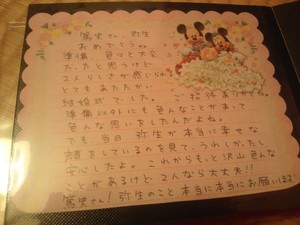 篤史さん、弥生
おめでとう。
準備 色々と大変
だったと思うけど
2人らしさが感じられて
とてもあたたかい
結婚式でした。ご招待ありがとね。
準備以外にも色んなことがあって
色んな思いをしたんだよね。
でも当日 弥生が本当に幸せな
顔をしているのを見て、うれしかったし
安心したよ。これからもっと沢山色んな
ことがあるけど 2人なら大丈夫!!
篤史さん!弥生のこと本当に本当にお願いします